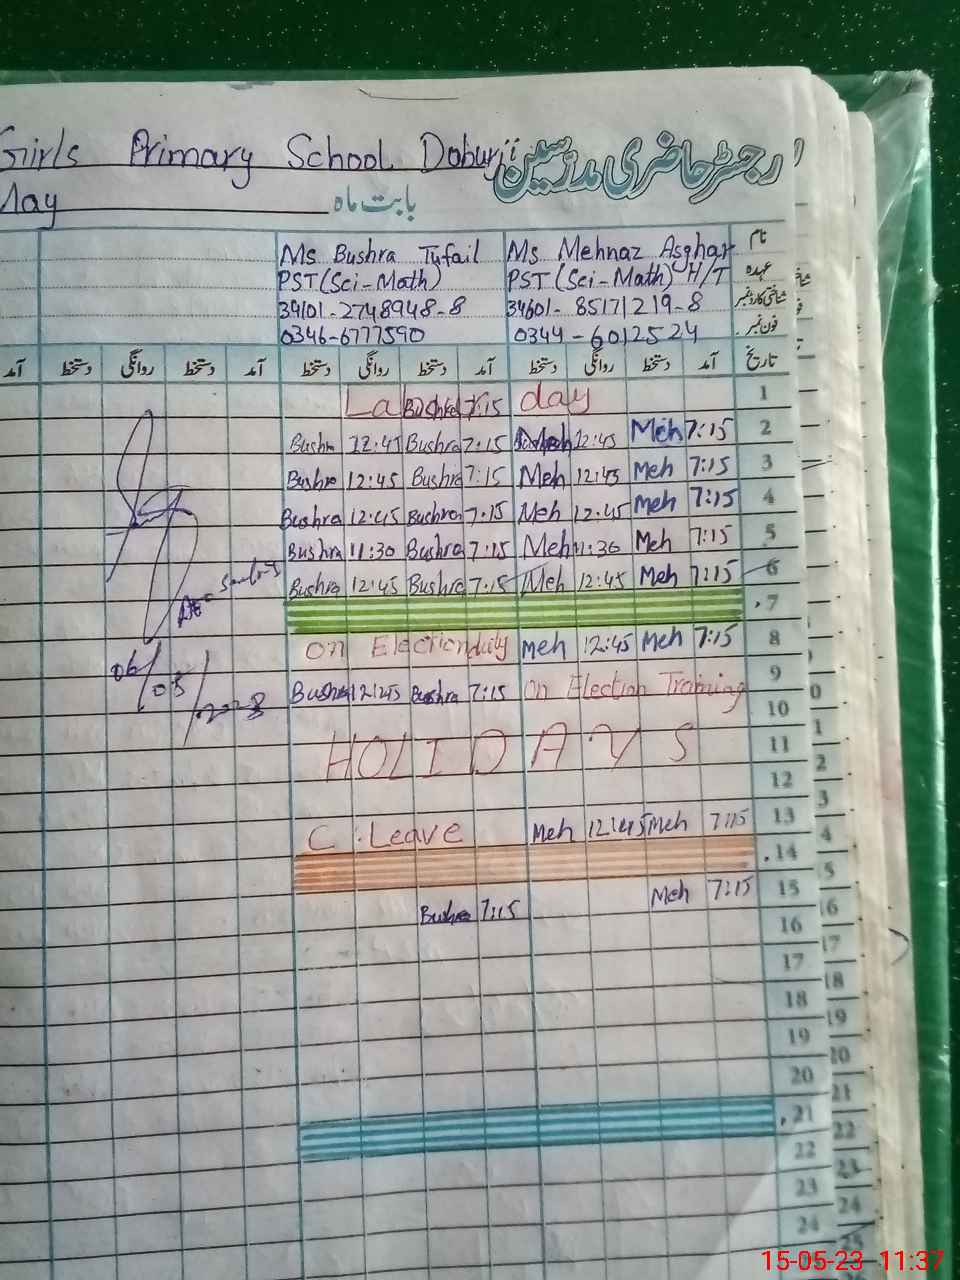 Girls Primary School Doburji رجسٹر حاضری مدرسین
May بابت ماہ
Ms Bushra Tufail Ms Mehnaz Asghar نام
PST (Sci-Math) PST (Sci-Math) H/T عہدہ
34101-2748948-8 34601-85171219-8 شناختی کارڈ نمبر
0346-6777590 0344-6012524 فون نمبر
آمد دستخط روانگی دستخط آمد دستخط روانگی دستخط آمد دستخط روانگی دستخط آمد تاریخ
Bushra 7:15 day 1
12:45 Bushra 7:15 12:45 Meh 7:15 2
Bushra 12:45 Bushra 7:15 Meh 12:45 Meh 7:15 3
Bushra 12:45 Bushra 7:15 Meh 12:45 Meh 7:15 4
Bushra 11:30 Bushra 7:15 Meh 11:30 Meh 7:15 5
Bushra 12:45 Bushra 7:15 Meh 12:45 Meh 7:15 6
7
On Meh 12:45 Meh 7:15 8
Bushra 12:45 Bushra 7:15 On Election Training 9
10
HOLIDAYS 11
12
C.Leave Meh 12:45 Meh 7:15 13
14
Bushra 7:15 Meh 7:15 15
16
17
18
19
20
21
22
23
24
06/05/2023
15-05-23 11:37